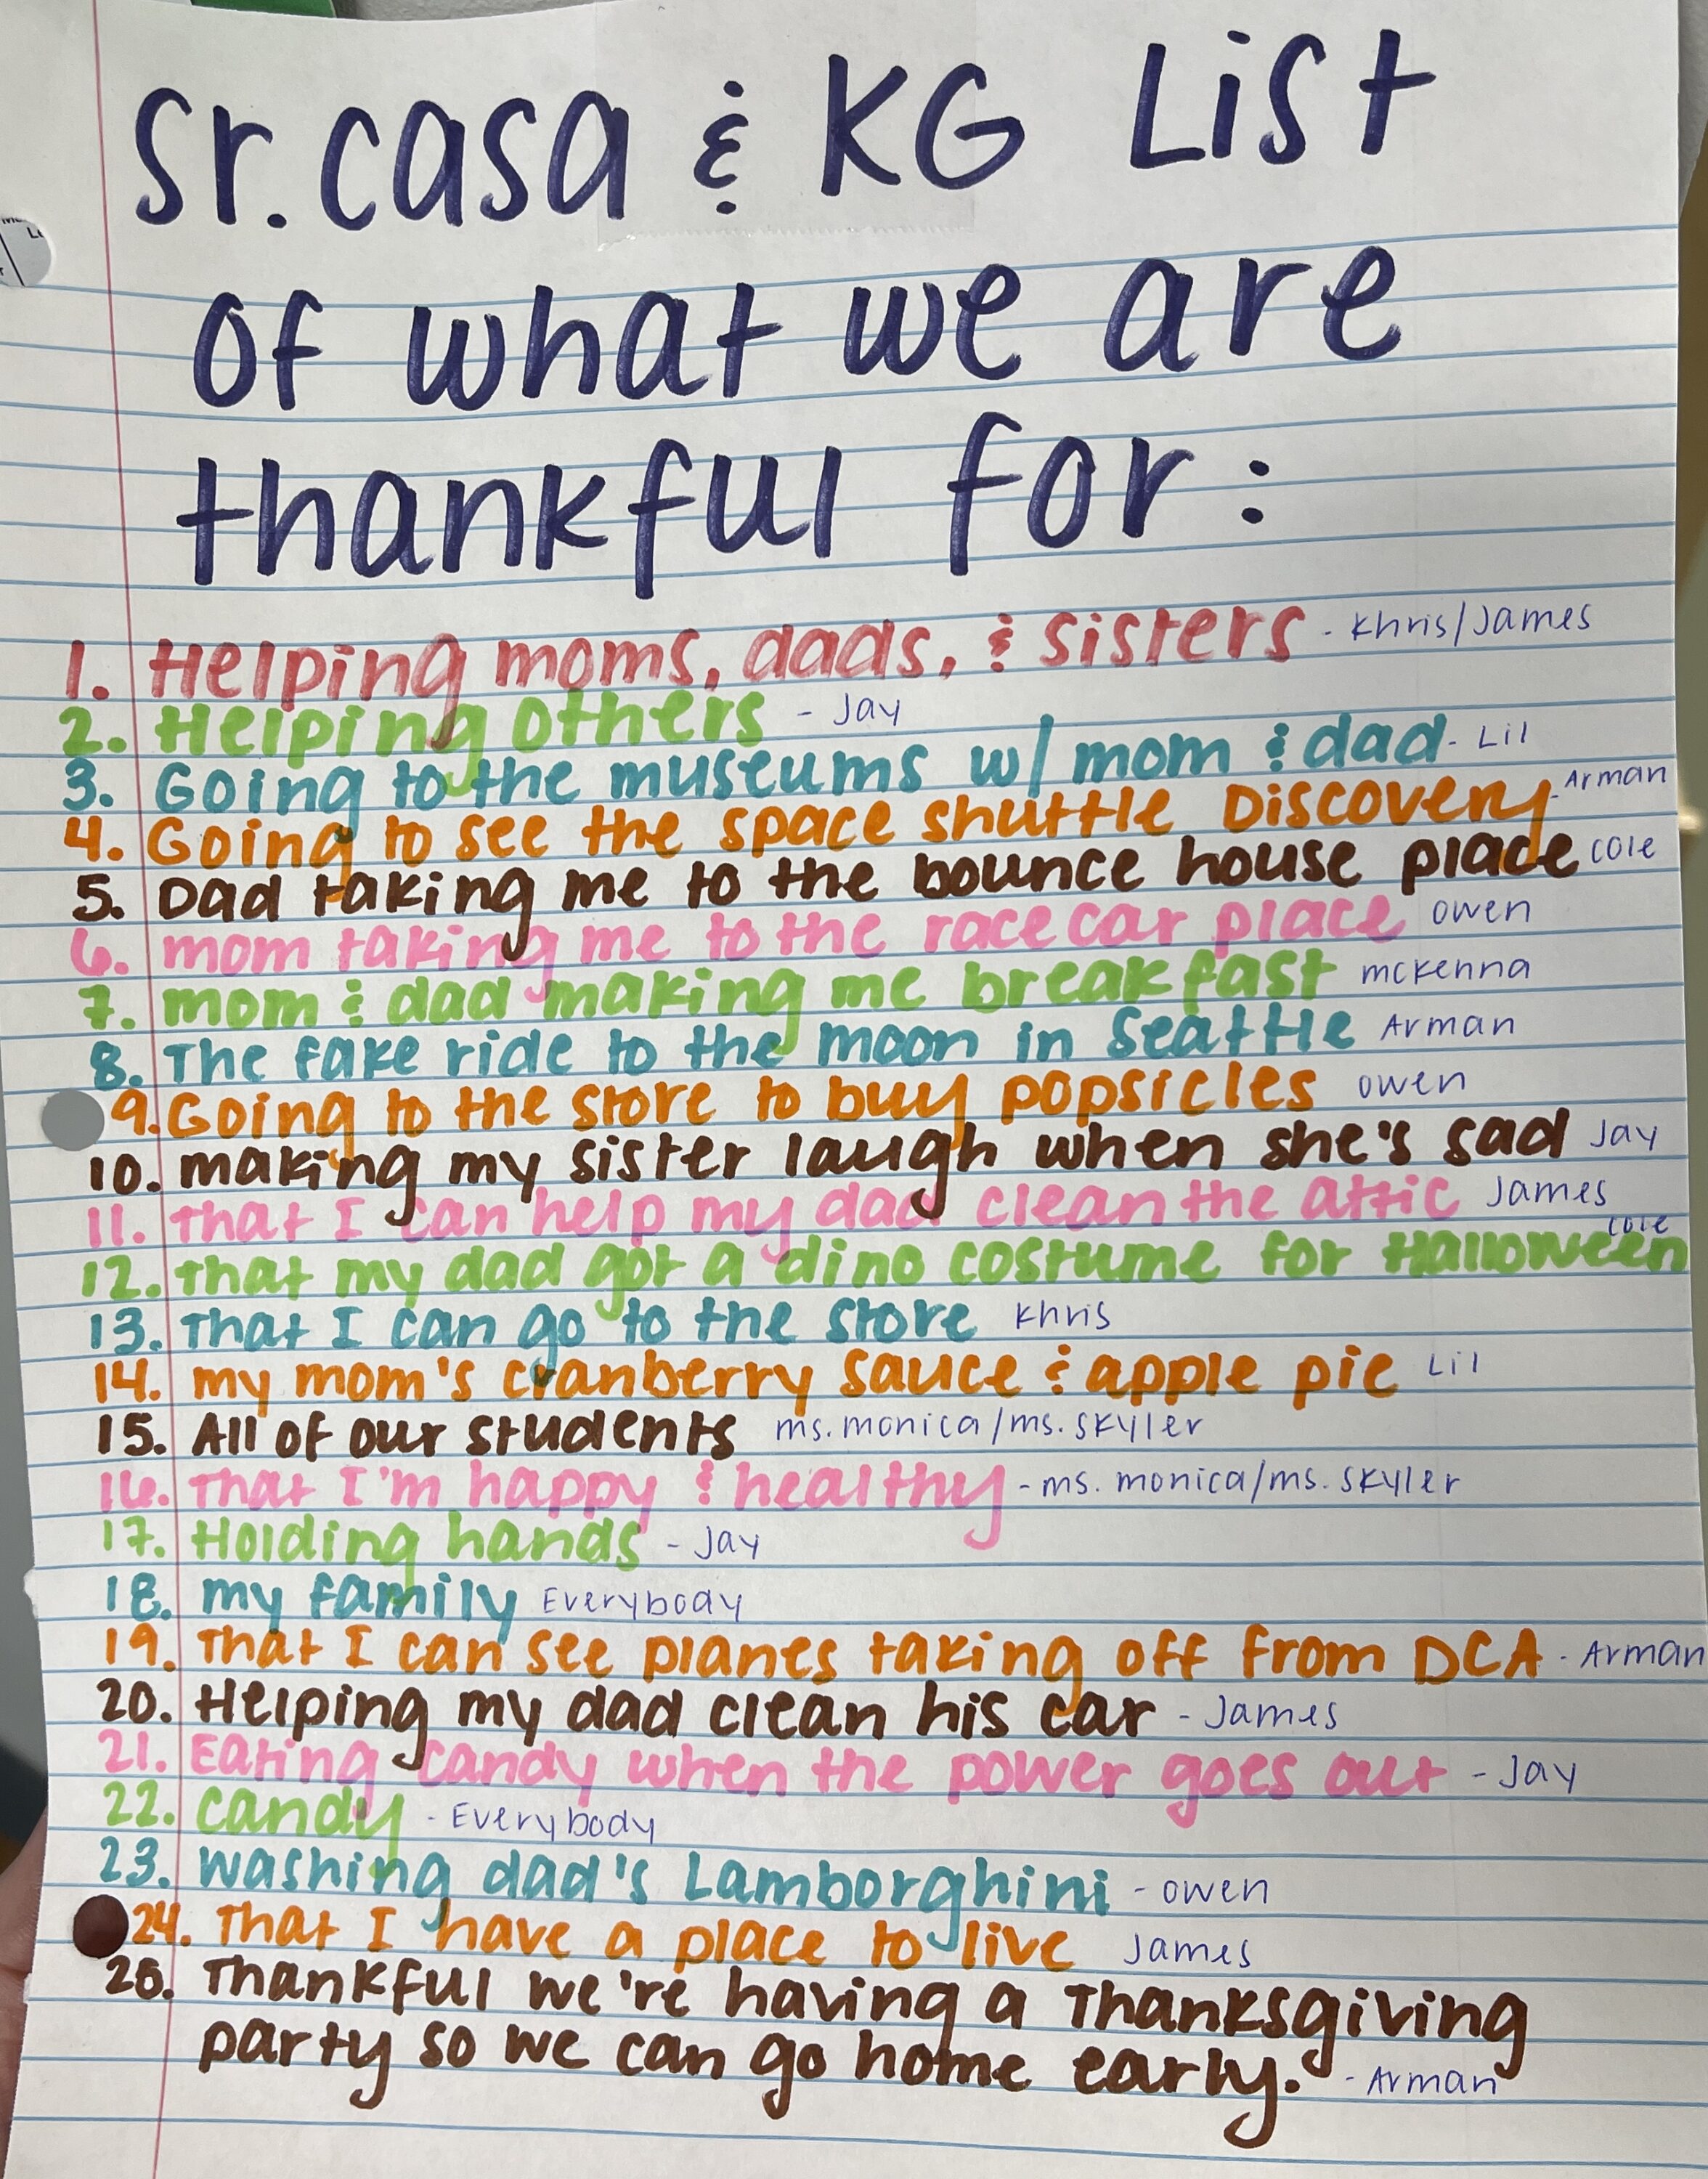 Sr. casa & KG List
of what we are
thankful for:
1. Helping moms, dads, & sisters - Khris/James
2. Helping others - Jay
3. Going to the museums w/ mom & dad - Lil
4. Going to see the space shuttle Discovery - Arman
5. Dad taking me to the bounce house place cole
6. mom taking me to the race car place owen
7. mom & dad making me breakfast mckenna
8. The fake ride to the moon in Seattle Arman
9. Going to the store to buy popsicles owen
10. making my sister laugh when she's sad Jay
11. That I can help my dad clean the attic James
12. That my dad got a dino costume for Halloween cole
13. That I can go to the store Khris
14. my mom's cranberry sauce & apple pie Lil
15. All of our students ms. monica/ms. skyler
16. That I'm happy & healthy - ms. monica/ms. skyler
17. Holding hands - Jay
18. my family Everybody
19. That I can see planes taking off from DCA - Arman
20. Helping my dad clean his car - James
21. Eating candy when the power goes out - Jay
22. candy - Everybody
23. washing dad's Lamborghini - owen
24. That I have a place to live James
25. Thankful we're having a Thanksgiving
party so we can go home early. - Arman